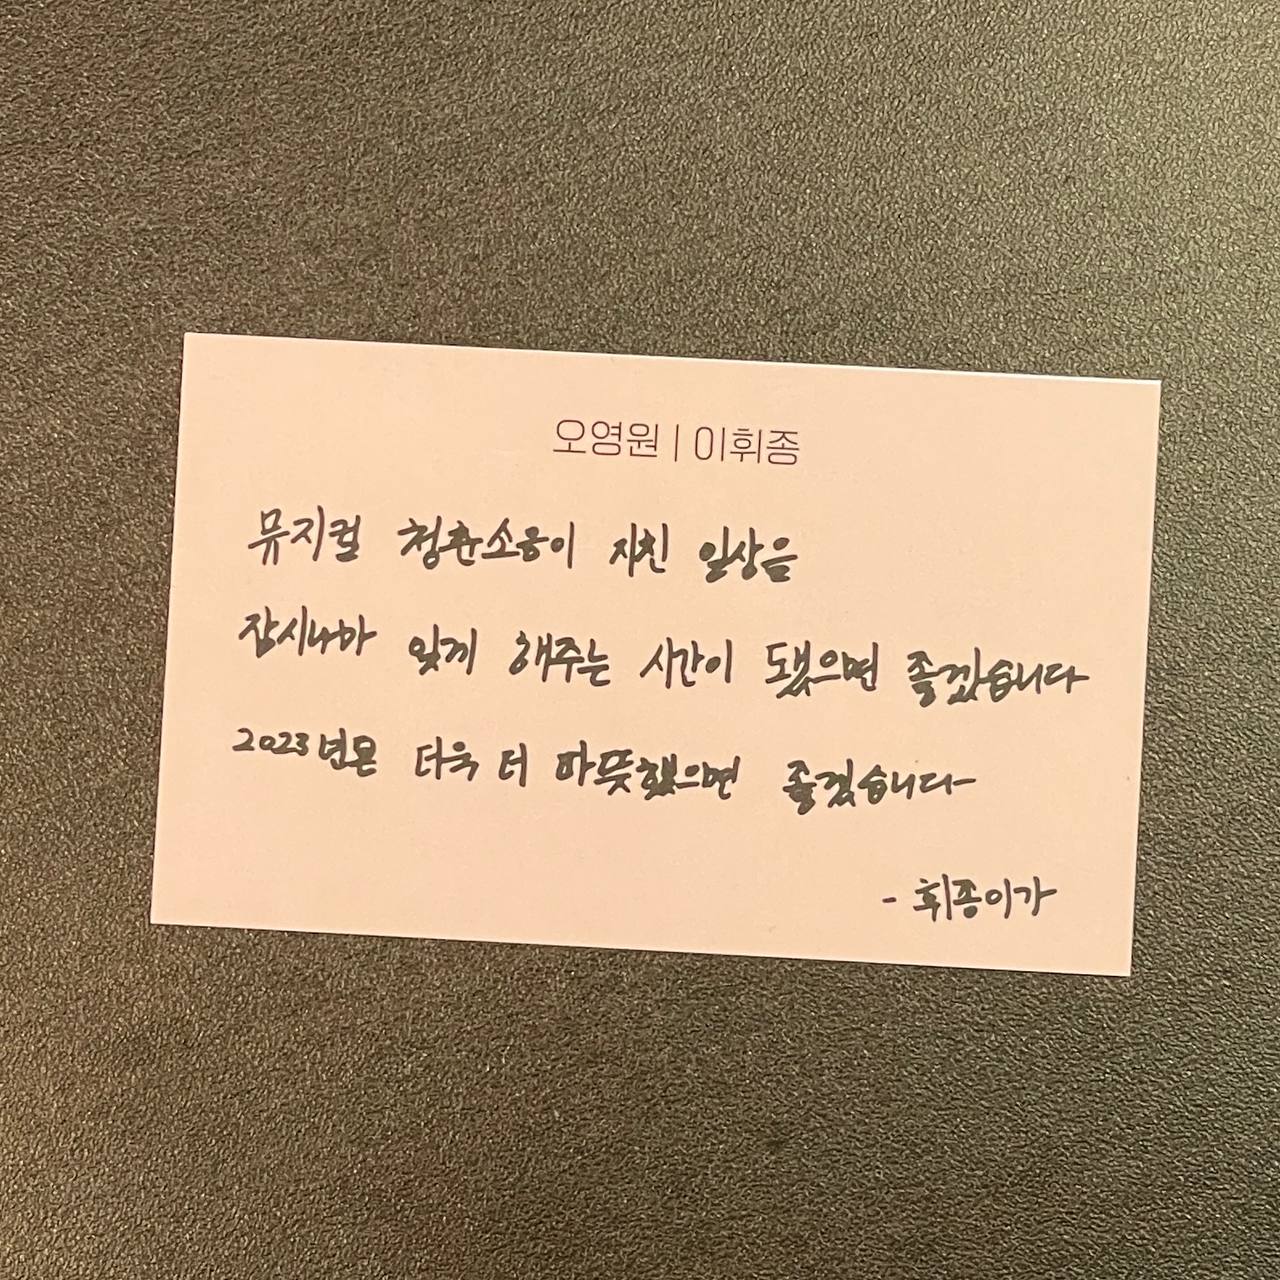 오영원 | 이휘종
뮤지컬 청춘소음이 지친 일상을
잠시나마 잊게 해주는 시간이 됐으면 좋겠습니다
2023년은 더욱 더 따뜻했으면 좋겠습니다-
- 휘종이가